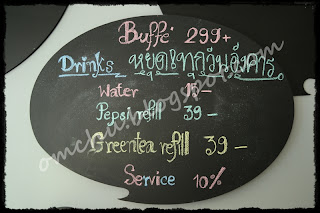 Buffé 299+
Drinks หยุด!ทุกวันอังคาร
Water 15 –
Pepsi refill 39 –
Greentea refill 39 –
Service 10%
omchii.blogspot.com